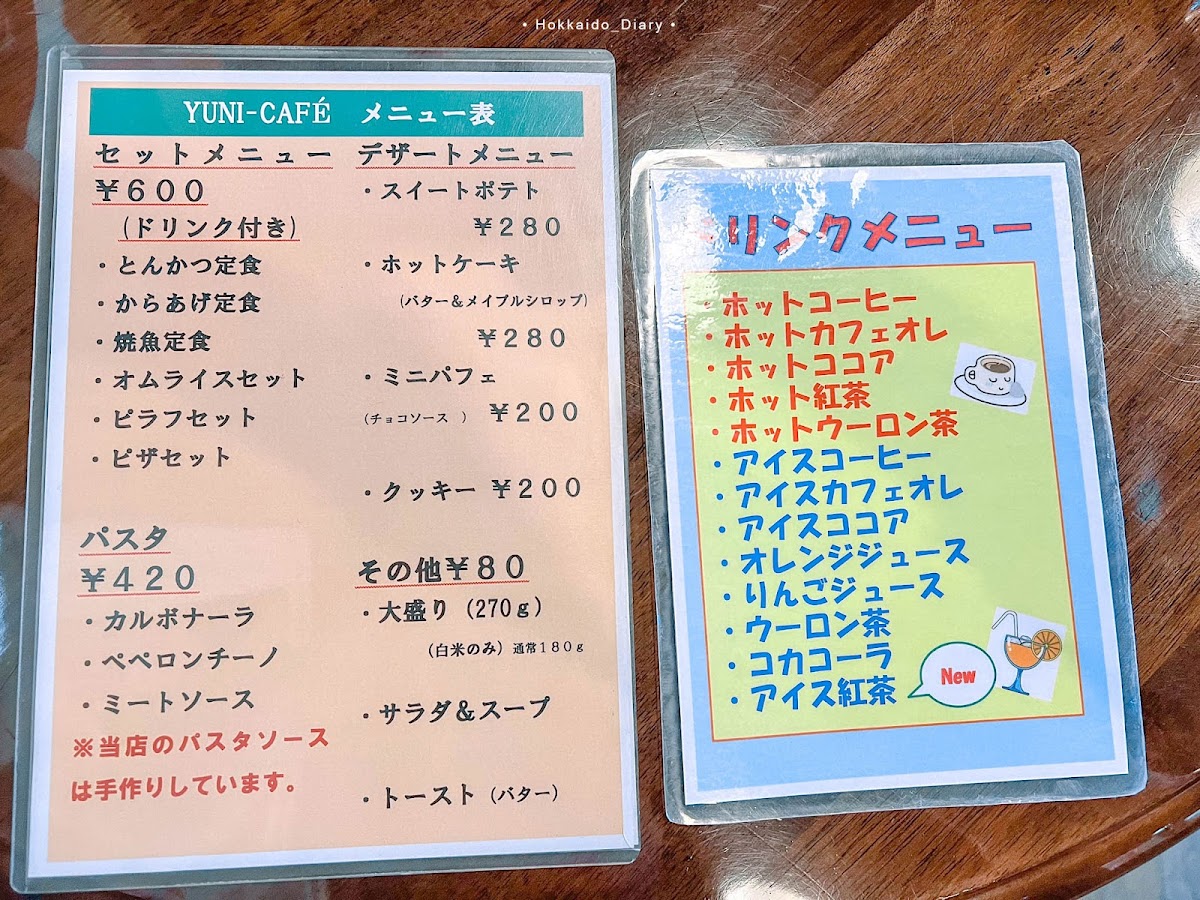 • Hokkaido_Diary •
YUNI-CAFÉ メニュー表
セットメニュー
￥600
(ドリンク付き)
・とんかつ定食
・からあげ定食
・焼魚定食
・オムライスセット
・ピラフセット
・ピザセット
パスタ
￥420
・カルボナーラ
・ペペロンチーノ
・ミートソース
※当店のパスタソース
は手作りしています。
デザートメニュー
・スイートポテト
￥280
・ホットケーキ
(バター＆メイプルシロップ)
￥280
・ミニパフェ
(チョコソース ) ￥200
・クッキー ￥200
その他￥80
・大盛り (270ｇ)
(白米のみ) 通常180ｇ
・サラダ＆スープ
・トースト (バター)
ドリンクメニュー
・ホットコーヒー
・ホットカフェオレ
・ホットココア
・ホット紅茶
・ホットウーロン茶
・アイスコーヒー
・アイスカフェオレ
・アイスココア
・オレンジジュース
・りんごジュース
・ウーロン茶
・コカコーラ
・アイス紅茶
New